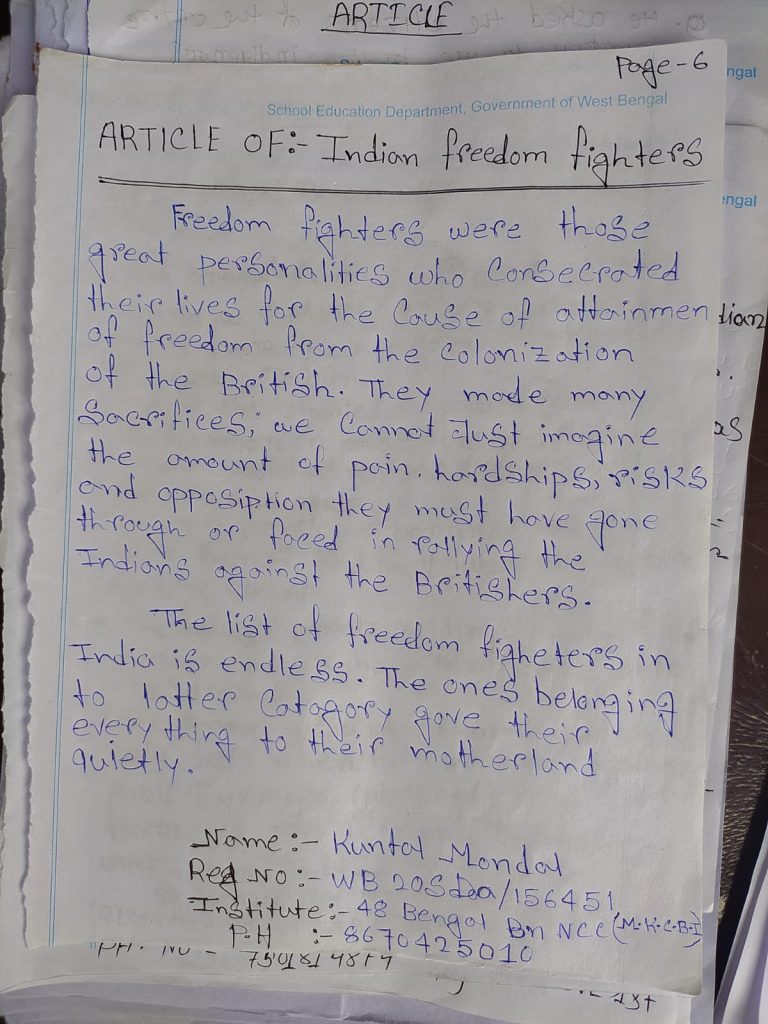 ARTICLE
Page-6
ngal
School Education Department, Government of West Bengal
ARTICLE OF:- Indian freedom fighters
engal
Freedom fighters were those
great personalities who Consecrated
their lives for the Cause of attainmen
tian
of freedom from the Colonization
of the British. They made many
Sacrifices; we Cannot Just imagine
as
the amount of pain. hardships, risks
and opposiption they must have gone
through or faced in rallying the
Indians against the Britishers.
The list of freedom figheters in
India is endless. The ones belonging
to latter Catagory gave their
every thing to their motherland
quietly.
Name :- Kuntal Mondal
Reg No :- WB 20Sdaa/156451
Institute:- 48 Bengal Bn NCC (M.K.C.B.I)
P.H :- 8670425010
PH. NO -